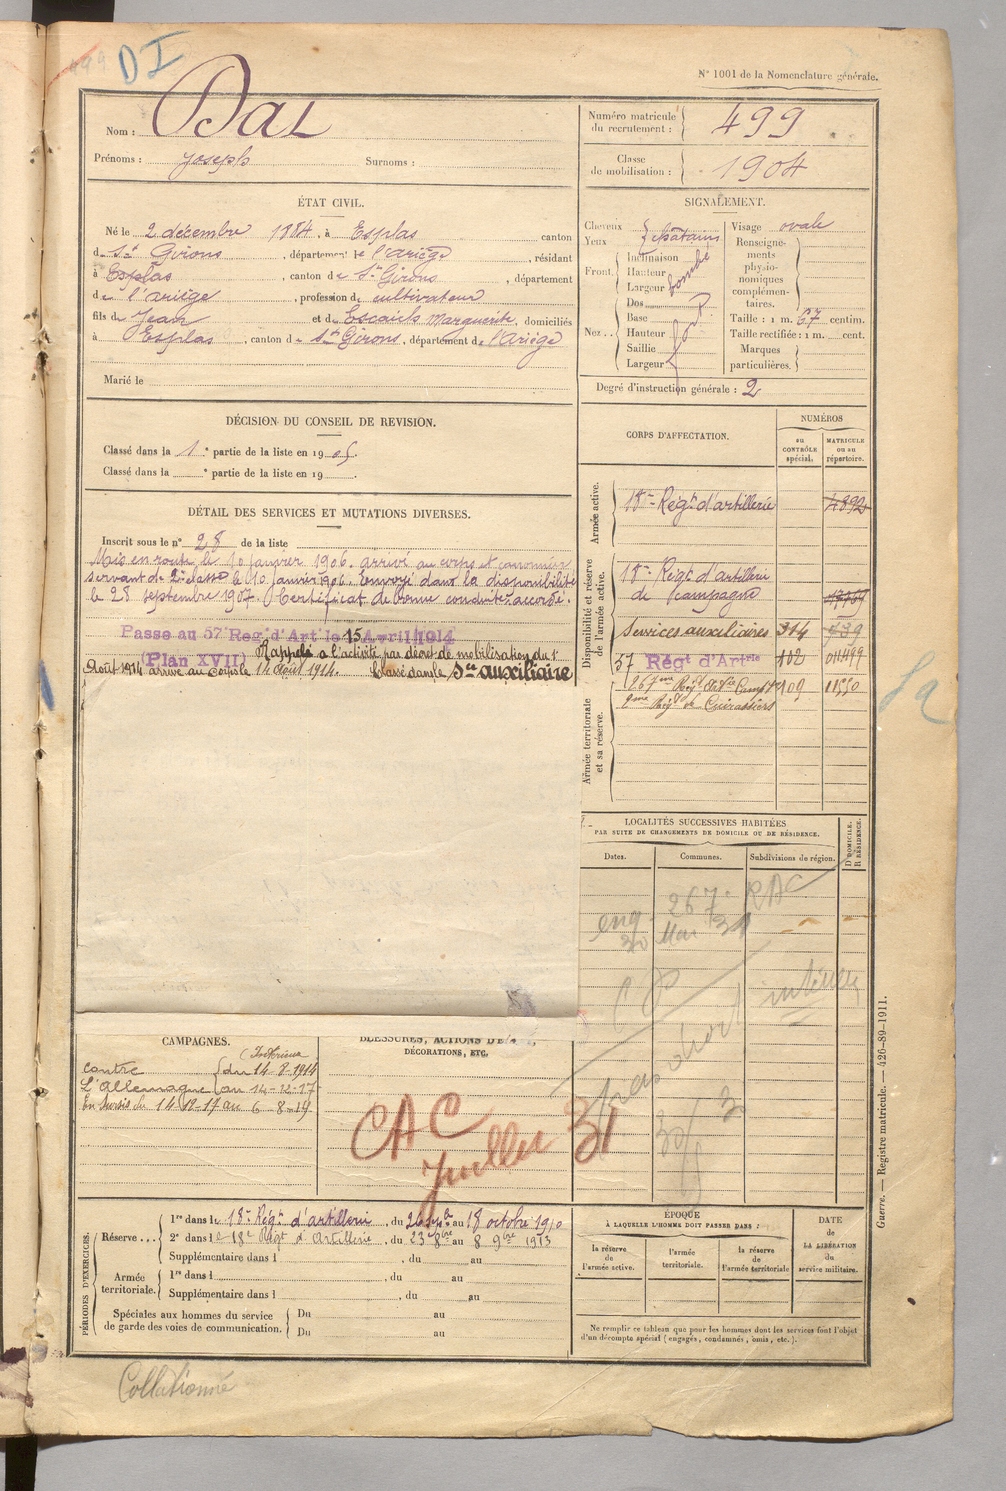 499
DI
N° 1001 de la Nomenclature générale.
Nom : Dal
Prénoms : Joseph Surnoms :
Numéro matricule du recrutement : 499
Classe de mobilisation : 1904
ÉTAT CIVIL.
Né le 2 décembre 1884, à Esplas canton
de St Girons, département de l'Ariège, résidant
à Esplas, canton de St Girons, département
de l'Ariège, profession de cultivateur
fils de Jean et de Escaich Marguerite, domiciliés
à Esplas, canton de St Girons, département de l'Ariège
Marié le
SIGNALEMENT.
Cheveux
Yeux
châtains
Front
Inclinaison
Hauteur
Largeur
bombé
Nez
Dos
Base
Hauteur
Saillie
Largeur
fort
Visage ovale
Renseignements physionomiques complémentaires.
Taille : 1 m. 67 centim.
Taille rectifiée : 1 m. cent.
Marques particulières.
Degré d'instruction générale : 2
DÉCISION DU CONSEIL DE REVISION.
Classé dans la 1e partie de la liste en 1905.
Classé dans la e partie de la liste en 19 .
DÉTAIL DES SERVICES ET MUTATIONS DIVERSES.
Inscrit sous le n° 28 de la liste
Mis en route le 10 janvier 1906. arrivé au corps et canonnier
servant de 2e classe le 10 janvier 1906. Envoyé dans la disponibilité
le 28 septembre 1907. Certificat de bonne conduite accordé.
Passe au 57e Reg. d'Art le 15 Avril 1914
(Plan XVII) Rappelé à l'activité par décret de mobilisation du 1er
Août 1914 arrivé au corps le 14 Août 1914. Classé dans le Sce auxiliaire
CORPS D'AFFECTATION.
NUMÉROS
au CONTRÔLE spécial.
MATRICULE ou au répertoire.
Armée active.
18me Régt d'artillerie 4892
Disponibilité et réserve de l'armée active.
18me Régt d'artillerie
de campagne
Services auxiliaires 314 739
57 Régt d'Artrie 102 011499
Armée territoriale et sa réserve.
267me Régt d'Artie Campne 109 11550
2me Régt de Cuirassiers
Sa
LOCALITÉS SUCCESSIVES HABITÉES
PAR SUITE DE CHANGEMENTS DE DOMICILE OU DE RÉSIDENCE.
Dates. Communes. Subdivisions de région.
D. DOMICILE. R. RÉSIDENCE.
267e RAC
30 Mai 31
CAMPAGNES.
Intérieur
Contre du 14-8-1914
L'Allemagne au 14-12-17
En sursis du 14-12-17 au 6-8-19
BLESSURES, ACTIONS D'É
DÉCORATIONS, ETC.
CAC
Juillet 31
PÉRIODES D'EXERCICES.
Réserve...
1re dans le 18e Régt d'artillerie, du 26 septbre au 18 octobre 1910
2e dans le 18e Régt d'Artillerie, du 23 8bre au 8 9bre 1913
Supplémentaire dans l , du au
Armée territoriale.
1re dans l du au
Supplémentaire dans l , du au
Spéciales aux hommes du service de garde des voies de communication.
Du au
Du au
ÉPOQUE
À LAQUELLE L'HOMME DOIT PASSER DANS :
la réserve de l'armée active.
l'armée territoriale.
la réserve de l'armée territoriale
DATE de LA LIBÉRATION du service militaire.
Ne remplir ce tableau que pour les hommes dont les services font l'objet
d'un décompte spécial (engagés, condamnés, omis, etc.).
Guerre. — Registre matricule. — 426-89-1911.
Collationné